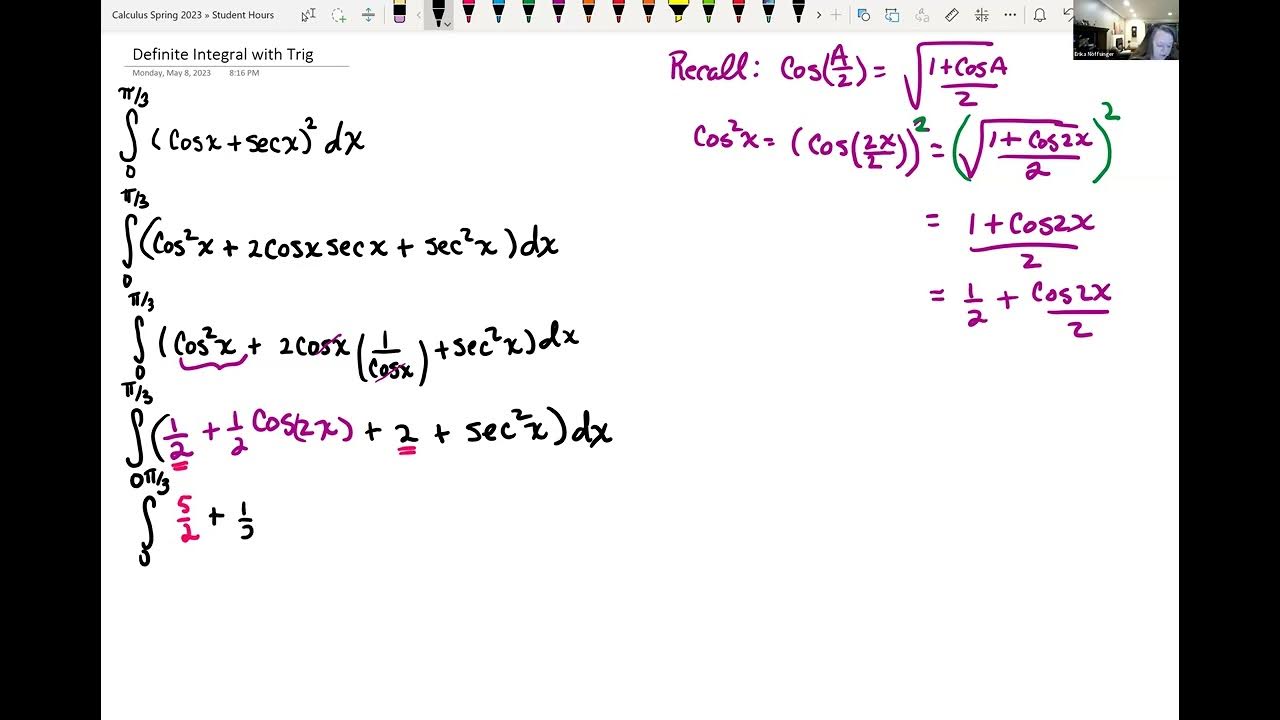 Calculus Spring 2023 » Student Hours
Erika Noffsinger
Definite Integral with Trig
Monday, May 8, 2023 8:16 PM
∫₀^{π/3} (cosx + secx)² dx
∫₀^{π/3} (cos²x + 2cosx secx + sec²x) dx
∫₀^{π/3} (cos²x + 2cosx (1/cosx) + sec²x) dx
∫₀^{π/3} (1/2 + 1/2 cos(2x) + 2 + sec²x) dx
∫₀^{π/3} 5/2 + 1/2
Recall: Cos(A/2) = √((1+cosA)/2)
Cos²x = (cos(2x/2))² = (√((1+cos2x)/2))²
= (1+cos2x)/2
= 1/2 + cos2x/2